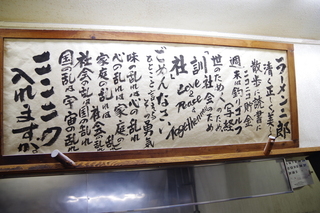 ラーメン二郎
清く正しく美しく
散歩と読書に
ニコニコ貯金
週末は釣り(写経)
世のため人のため
「訓」社会のため
Love & Peace & Togetherness
「社」
ごめんなさい
ひとことのその勇気
味の乱れは心の乱れ
心の乱れは家庭の乱れ
家庭の乱れは社会の乱れ
社会の乱れは国の乱れ
国の乱れは宇宙の乱れ
ニンニク
入れますか